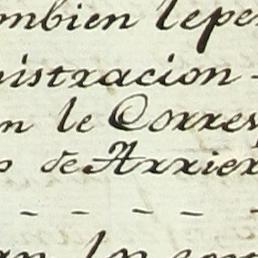 ombien lepe
nistracion
n le Corres
s de Arrier
- - - - -
an los con